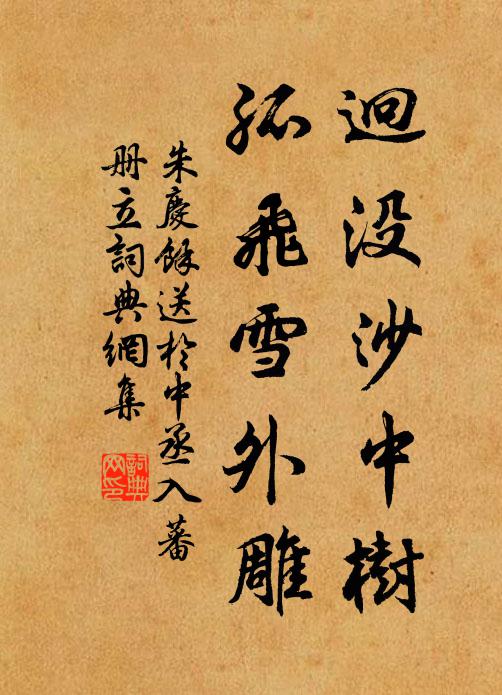 迥没沙中樹
孤飛雪外雕
朱慶餘送於中丞入蕃
册立詞典網集
詞典
网印